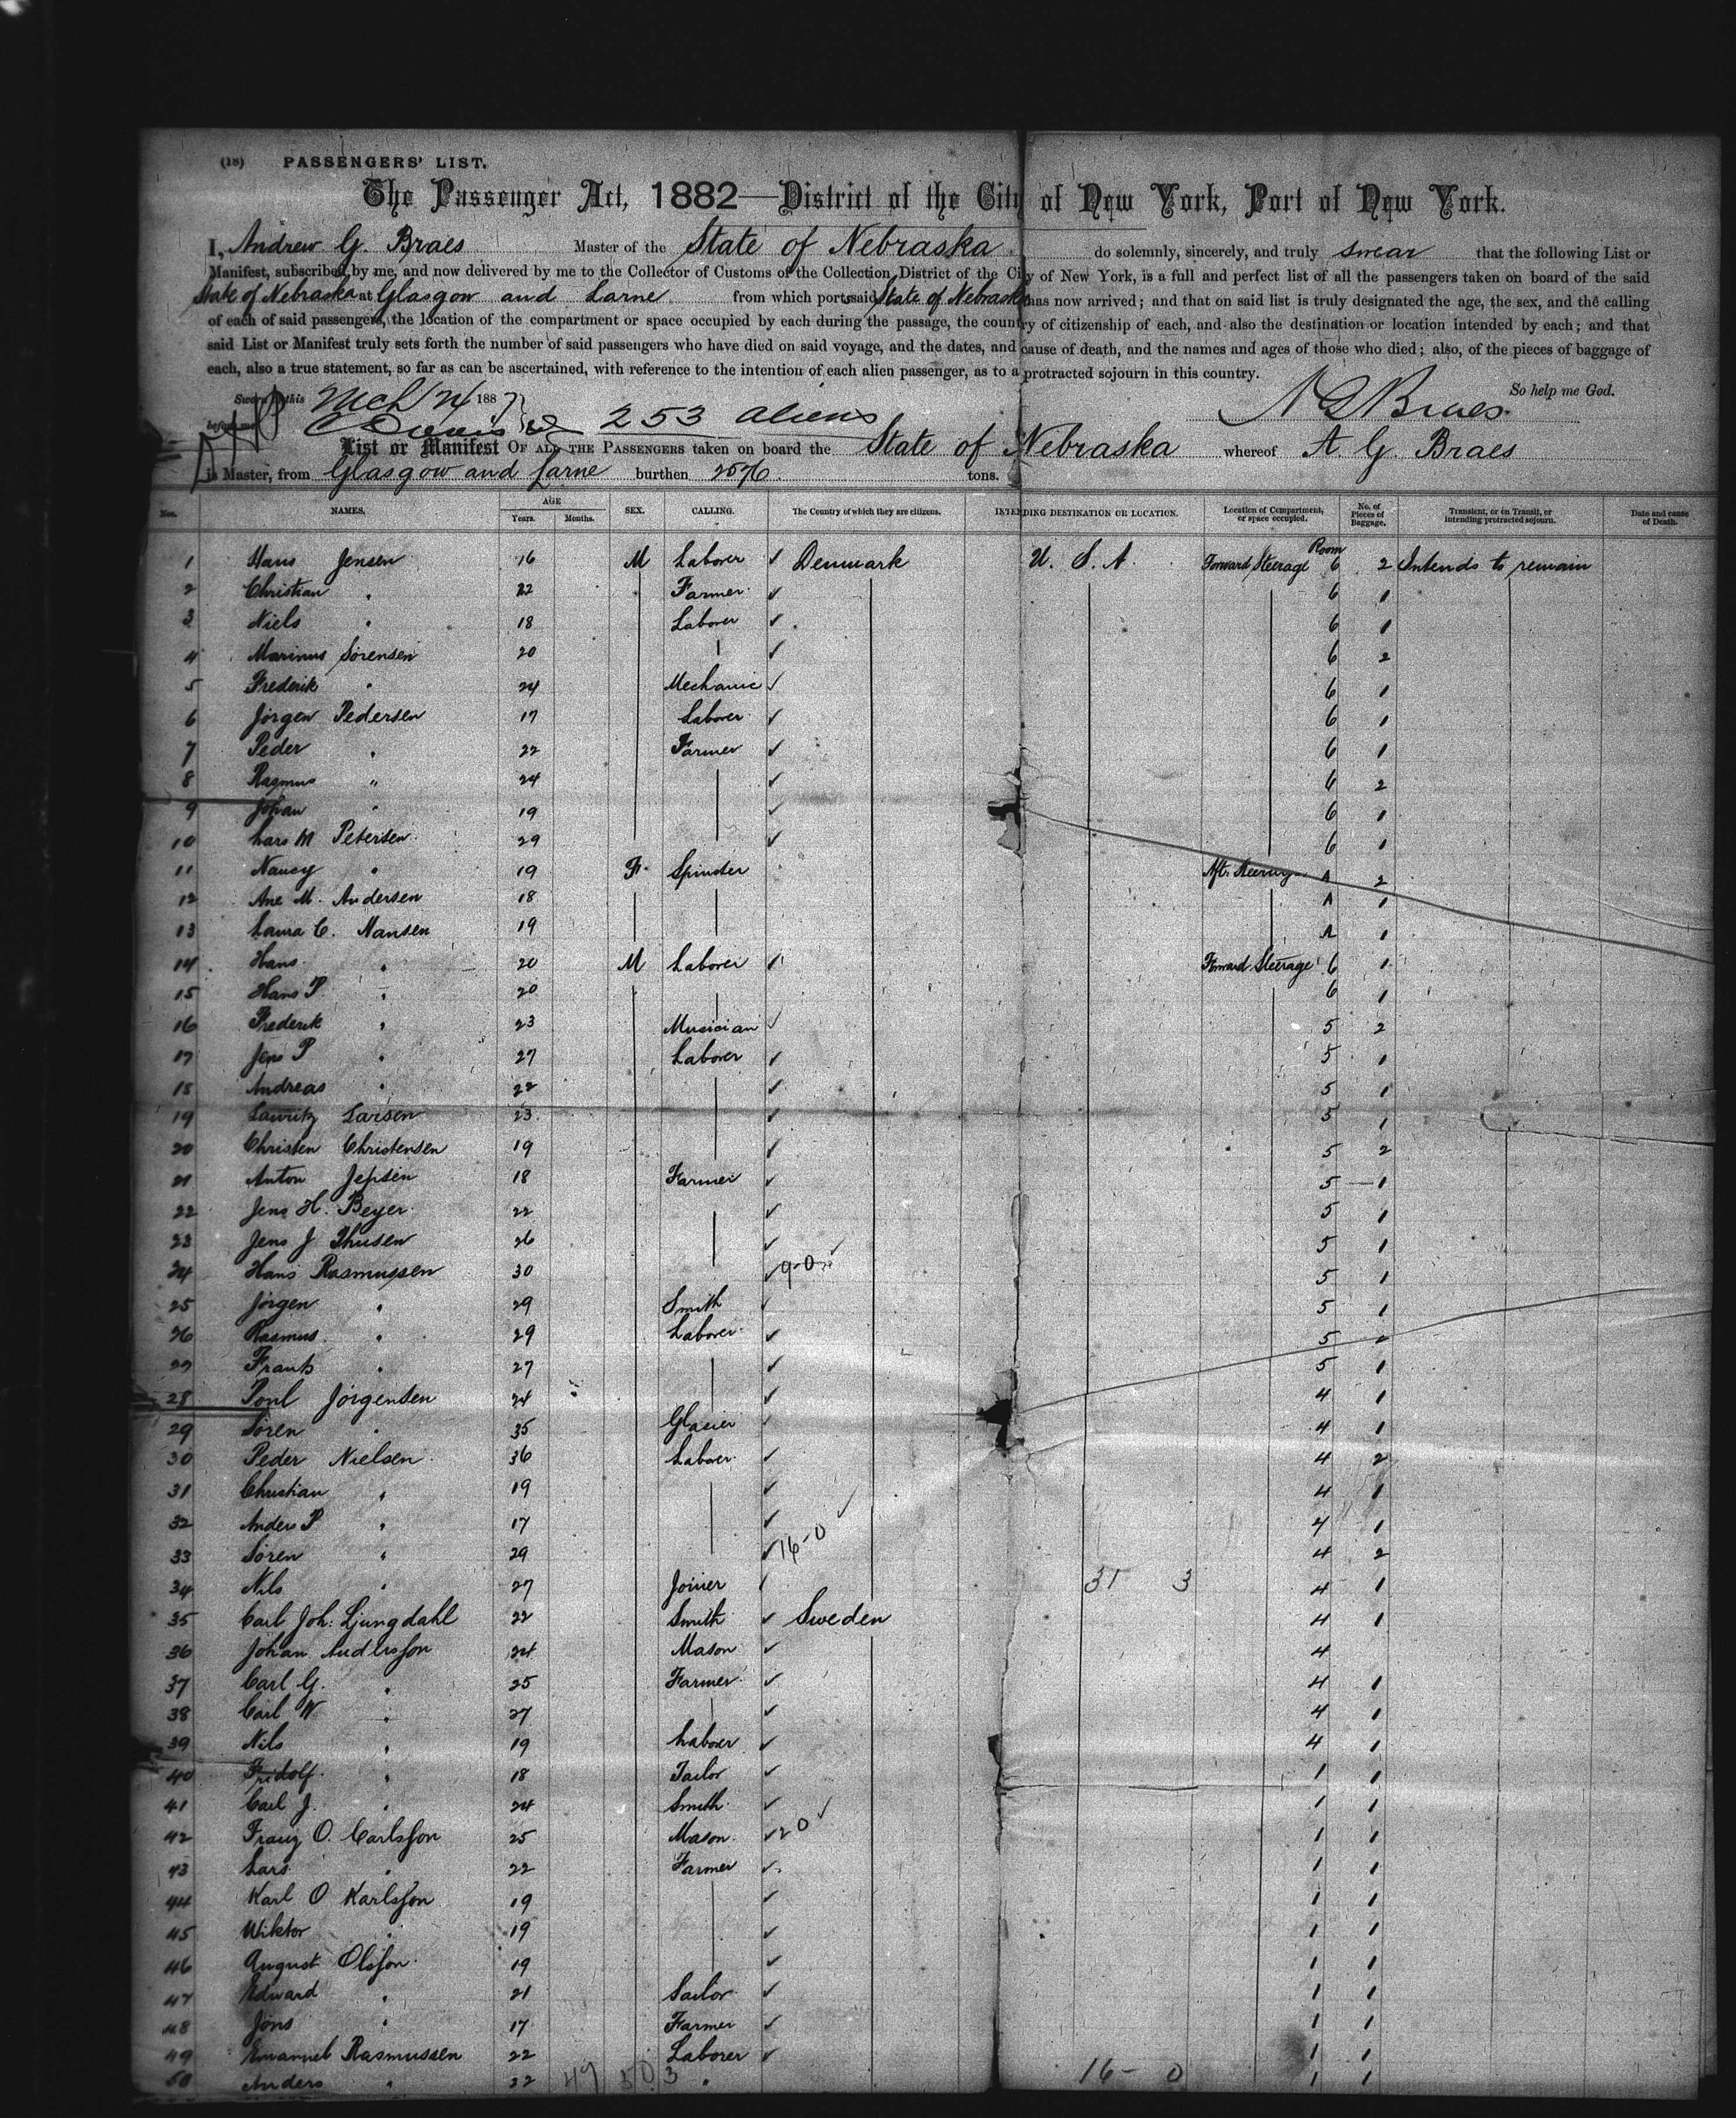 (18) PASSENGERS' LIST.
The Passenger Act, 1882—District of the City of New York, Port of New York.
I, Andrew G. Braes Master of the State of Nebraska do solemnly, sincerely, and truly swear that the following List or
Manifest, subscribed by me, and now delivered by me to the Collector of Customs of the Collection District of the City of New York, is a full and perfect list of all the passengers taken on board of the said
State of Nebraska at Glasgow and Larne from which port said State of Nebraska has now arrived; and that on said list is truly designated the age, the sex, and the calling
of each of said passengers, the location of the compartment or space occupied by each during the passage, the country of citizenship of each, and also the destination or location intended by each; and that
said List or Manifest truly sets forth the number of said passengers who have died on said voyage, and the dates, and cause of death, and the names and ages of those who died; also, of the pieces of baggage of
each, also a true statement, so far as can be ascertained, with reference to the intention of each alien passenger, as to a protracted sojourn in this country.
So help me God.
Sworn to this Mch 24 1887
A G Braes
before me 253 aliens
List or Manifest OF ALL THE PASSENGERS taken on board the State of Nebraska whereof A G. Braes
is Master, from Glasgow and Larne burthen 2576 tons.
Nos. NAMES. AGE Years. Months. SEX. CALLING. The Country of which they are citizens. INTENDING DESTINATION OR LOCATION. Location of Compartment, or space occupied. No. of Pieces of Baggage. Transient, or in Transit, or intending protracted sojourn. Date and cause of Death.
1 Hans Jensen 16 M Laborer ✓ Denmark U. S. A. Forward Steerage Room 6 2 Intends to remain
2 Christian " 22 Farmer ✓ 6 1
3 Niels " 18 Laborer ✓ 6 1
4 Marinus Sörensen 20 ✓ 6 2
5 Frederik " 24 Mechanic ✓ 6 1
6 Jörgen Pedersen 17 Laborer ✓ 6 1
7 Peder " 22 Farmer ✓ 6 1
8 Rasmus " 24 ✓ 6 2
9 Johan " 19 ✓ 6 1
10 Lars M Petersen 29 ✓ 6 1
11 Nancy " 19 F. Spinster Aft. Steerage A 2
12 Ane M. Andersen 18 A 1
13 Laura C. Hansen 19 A 1
14 Hans " 20 M Laborer ✓ Forward Steerage 6 1
15 Hans P. " 20 6 1
16 Frederik " 23 Musician ✓ 5 2
17 Jens P " 27 Laborer ✓ 5 1
18 Andreas " 22 ✓ 5 1
19 Lauritz Larsen 23 ✓ 5 1
20 Christen Christensen 19 ✓ 5 2
21 Anton Jepsen 18 Farmer ✓ 5 1
22 Jens H. Beyer 22 ✓ 5 1
23 Jens J Thusen 26 ✓ 5 1
24 Hans Rasmussen 30 ✓ 9-0 ✓ 5 1
25 Jörgen " 29 Smith ✓ 5 1
26 Rasmus " 29 Laborer ✓ 5
27 Frants " 27 ✓ 5 1
28 Poul Jörgensen 24 ✓ 4 1
29 Sören " 35 Glasier ✓ 4 1
30 Peder Nielsen 36 Laborer ✓ 4 2
31 Christian " 19 ✓ 4 1
32 Anders P " 17 ✓ 4 1
33 Sören " 29 ✓ 16-0 ✓ 4 2
34 Nils " 27 Joiner 31 3 4 1
35 Carl Joh: Ljungdahl 22 Smith ✓ Sweden 4 1
36 Johan Andersson 24 Mason ✓ 4
37 Carl G. " 25 Farmer ✓ 4 1
38 Carl W " 27 ✓ 4 1
39 Nils " 19 Laborer ✓ 4 1
40 Fridolf " 18 Tailor ✓ 1 1
41 Carl J. " 24 Smith ✓ 1 1
42 Franz O. Carlsson 25 Mason ✓ 20 ✓ 1 1
43 Lars " 22 Farmer ✓ 1 1
44 Karl O Karlsson 19 ✓ 1 1
45 Wiktor " 19 ✓ 1 1
46 August Olsson 19 ✓ 1 1
47 Edward " 21 Sailor ✓ 1 1
48 Jöns " 17 Farmer ✓ 1 1
49 Emanuel Rasmussen 22 Laborer ✓ 1 1
50 Anders " 22 49 50 3 " 16- 0 1 1